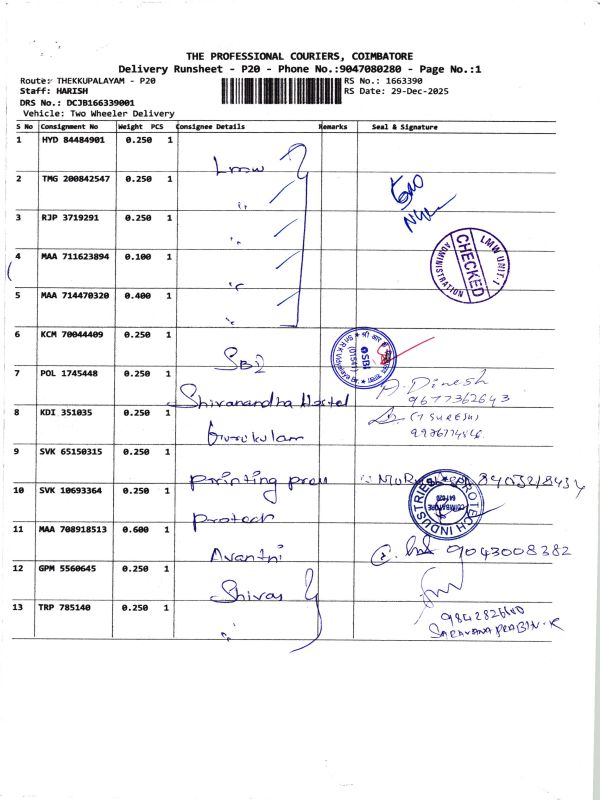 THE PROFESSIONAL COURIERS, COIMBATORE
Delivery Runsheet - P20 - Phone No.:9047080280 - Page No.:1
Route: THEKKUPALAYAM - P20 RS No.: 1663390
Staff: HARISH RS Date: 29-Dec-2025
DRS No.: DCJB166339001
Vehicle: Two Wheeler Delivery
S No Consignment No Weight PCS Consignee Details Remarks Seal & Signature
1 HYD 84484901 0.250 1 Lmw
2 TMG 200842547 0.250 1 ''
3 RJP 3719291 0.250 1 ''
4 MAA 711623894 0.100 1 '' LMW UNIT-1 CHECKED ADMINISTRATION
5 MAA 714470320 0.400 1 ''
6 KCM 70044409 0.250 1 SBI SBI (01541)
7 POL 1745448 0.250 1 Shivanandha Hostel A. Dinesh 9677362643
8 KDI 351035 0.250 1 Gurukulam (T SURESH)
9 SVK 65150315 0.250 1 Printing press
10 SVK 10693364 0.250 1 Protech PROTECH INDUSTRIES COIMBATORE
11 MAA 708918513 0.600 1 Avantni 9043008382
12 GPM 5560645 0.250 1 Shivas
13 TRP 785140 0.250 1 ''
SARAVANA PRABIN-K